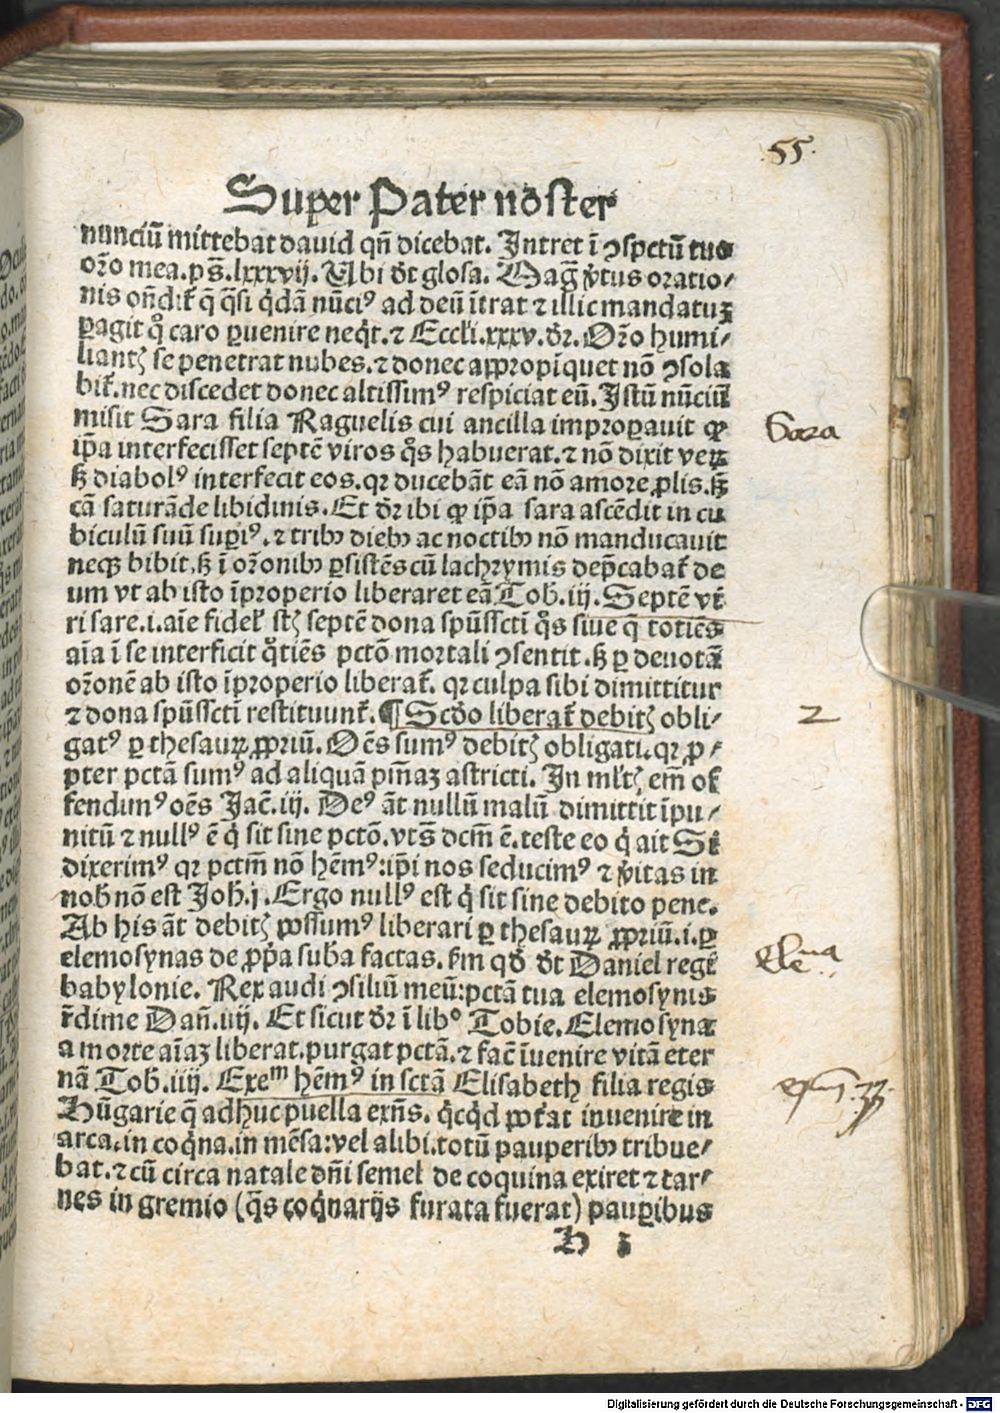 55.
Super Pater noster
nunciū mittebat david qn̄ dicebat. Intret ī ꝯspctū tuo
orō mea. ps̄. lxxxvij. Ubi dt̄ glosa. Maḡ v̓tus oratio/
nis on̄dit̄ q̄ q̄si q̓dā nūciꝰ ad deū ītrat ⁊ illic mandatuꝫ
ꝑagit qͦ caro ꝑuenire neq̓t. ⁊ Eccli. xxxv. dr̄. Orō humi/
liantꝭ se penetrat nubes. ⁊ donec appropīquet nō ꝯsola
bit̄. nec discedet donec altissimꝰ respiciat eū. Istū nūciū
misit Sara filia Raguelis cui ancilla improꝑavit ꝙ
ip̄a interfecisset septē viros qͦs habuerat. ⁊ nō dixit veꝝ
sꝫ diabolꝰ interfecit eos. qꝛ ducebāt eā nō amore ꝓlis. sꝫ
cā saturāde libidinis. Et dr̄ ibi ꝙ ip̄a sara ascēdit in cu
biculū suū suꝑiꝰ. ⁊ tribꝰ diebꝰ ac noctibꝰ nō manducavit
neqꝫ bibit. sꝫ ī orōnibꝰ ꝑsistēs cū lachrymis dep̄cabat̄ de
um vt ab isto īproperio liberaret eā Tob. iij. Septē vi
ri sare. i. aīe fidel̓ st̄ꝭ septē dona spūsscti qͦs siue q̄ totiēs
aīa ī se interficit qͦtiēs pctō mortali ꝯsentit. sꝫ ꝑ deuotā
orōnē ab isto īproperio liberat̄. qꝛ culpa sibi dimittitur
⁊ dona spūsscti restituunt̄. ¶ Scd̓o liberat̄ debitꝭ obli/
gatꝰ ꝑ thesauꝝ ꝓpriū. Oēs sumꝰ debitꝭ obligati. qꝛ ꝓ/
pter pctā sumꝰ ad aliquā pm̄aꝫ astricti. In ml̓tꝭ em̄ of
fendimꝰ oēs Jac̄. iij. Deꝰ āt nullū malū dimittit īpu/
nitū ⁊ nullꝰ ē q̓ sit sine pctō. vts̄ dcm̄ ē. teste eo q̓ ait Si
dixerimꝰ qꝛ pctm̄ nō hēmꝰ: ip̄i nos seducimꝰ ⁊ v̓itas in
nob̄ nō est Joh̄. j. Ergo nullꝰ est q̓ sit sine debito pene.
Ab his āt debitꝭ possumꝰ liberari ꝑ thesauꝝ ꝓpriū. i. ꝑ
elemosynas de ꝓp̄a sub̄a factas. ẜm qd̓ dt̄ Daniel regē
babylonie. Rex audi ꝯsiliū meū: pctā tua elemosynis
r̄dime Dan̄. iiij. Et sicut dr̄ ī libͦ Tobie. Elemosyna
a morte aīaꝫ liberat. purgat pctā. ⁊ fac̄ īuenire vitā eter
nā Tob. iiij. Exeᵐ hēmꝰ in sctā Elisabeth filia regis
Hūgarie q̄ adhuc puella exn̄s. q̓cq̓d pot̄at inuenire in
arca. in coq̓na. in mēsa: vel alibi. totū pauperibꝰ tribue/
bat. ⁊ cū circa natale dn̄i semel de coquina exiret ⁊ car/
nes in gremio (q̄s coq̓narijs furata fuerat) pauꝑibus
H i
Sara
2
Digitalisierung gefördert durch die Deutsche Forschungsgemeinschaft - DFG